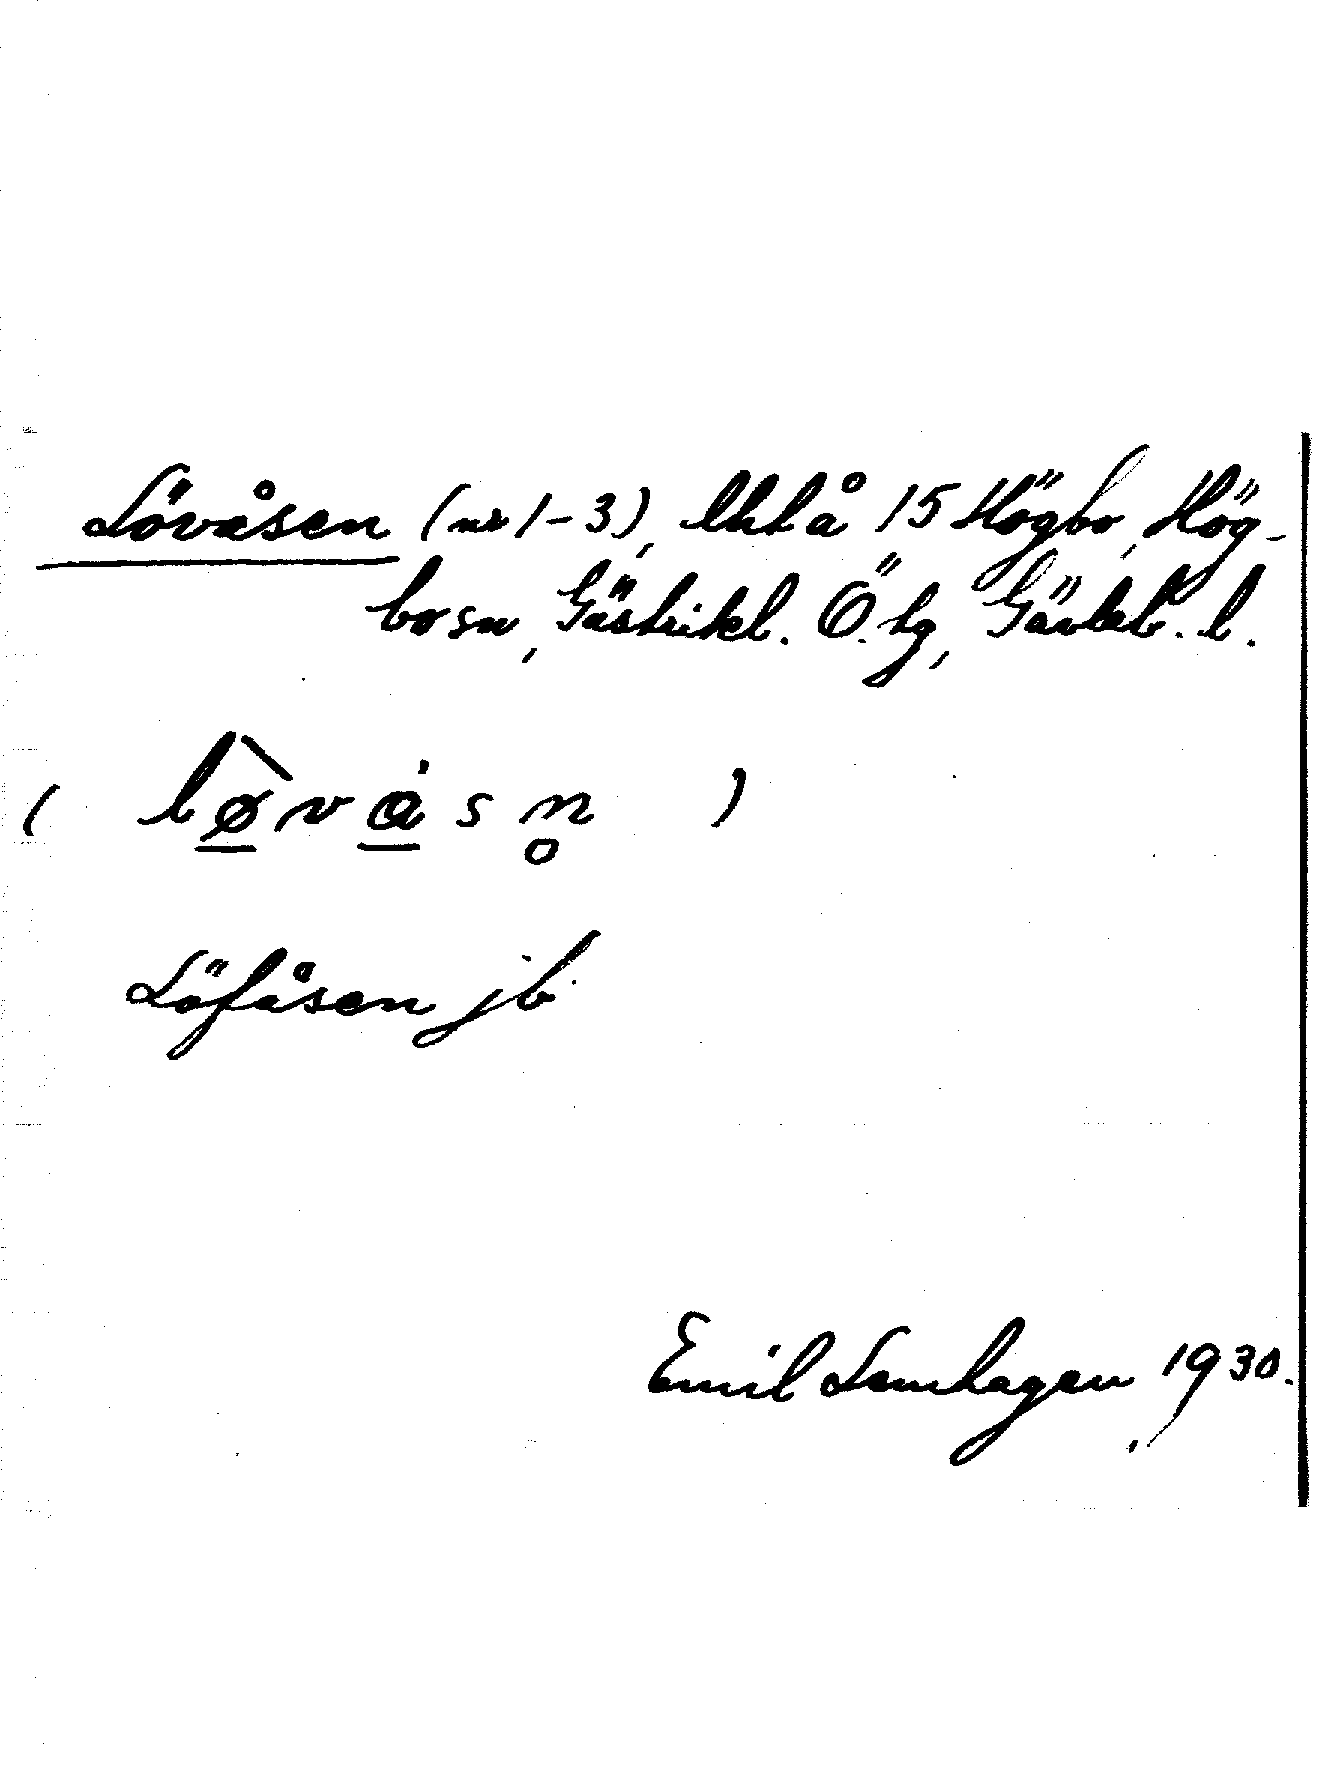 Lövåsen (nr 1-3), lht å 15 Högbo, Hög-
bo sn, Gästrikl. Ö. tg, Gävleb. l.
( lø̂våsn̥ )
Löfåsen jb
Emil Lennhagen 1930.